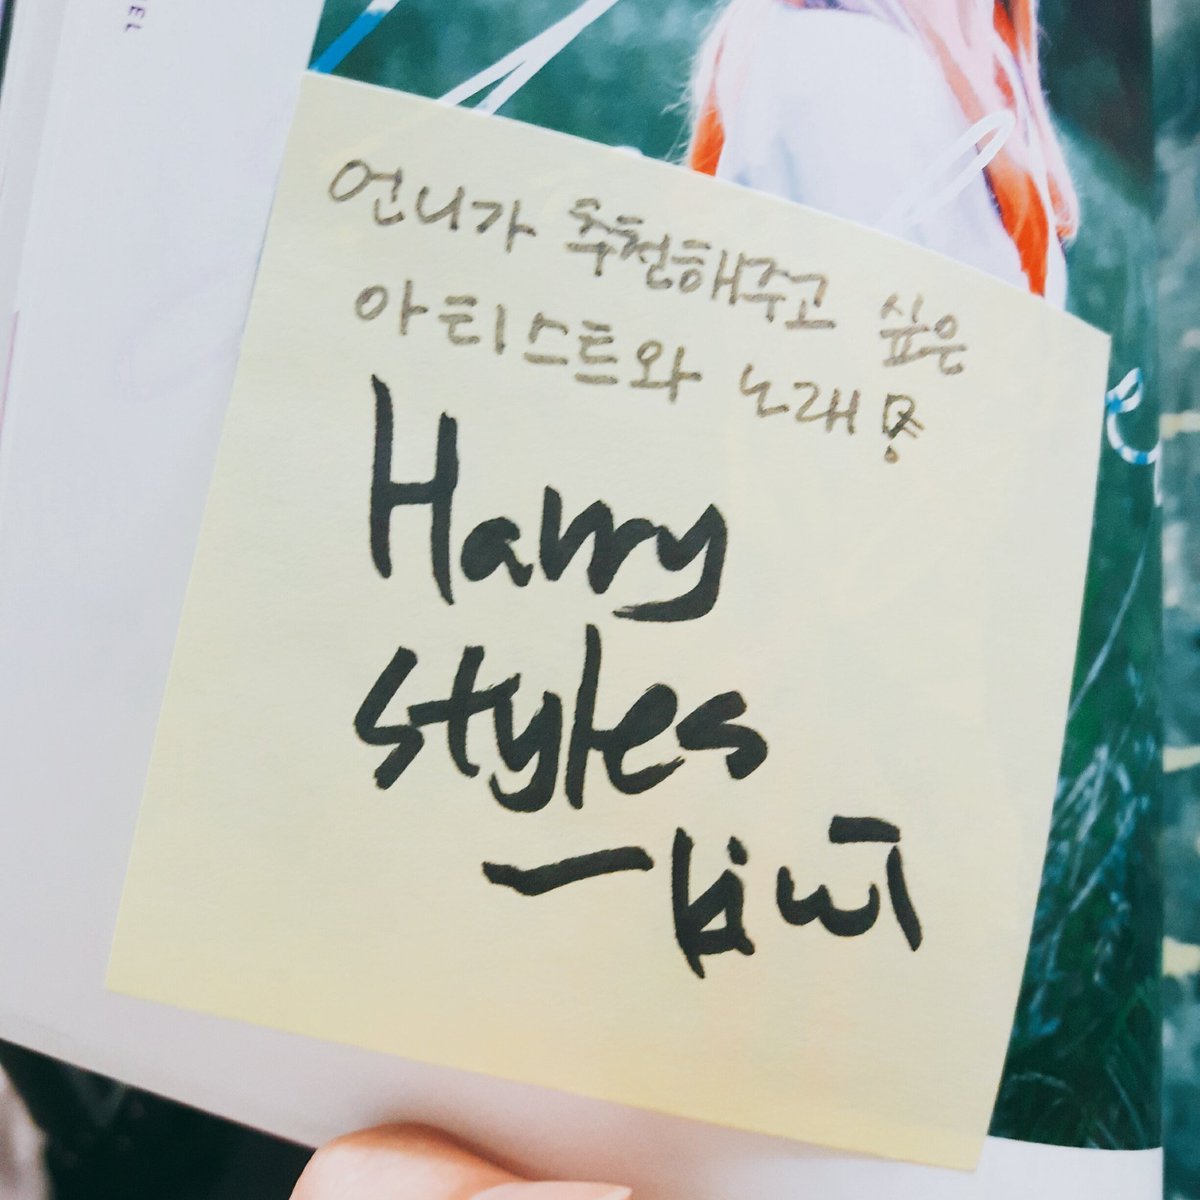 언니가 추천해주고 싶은
아티스트와 노래
Harry
styles